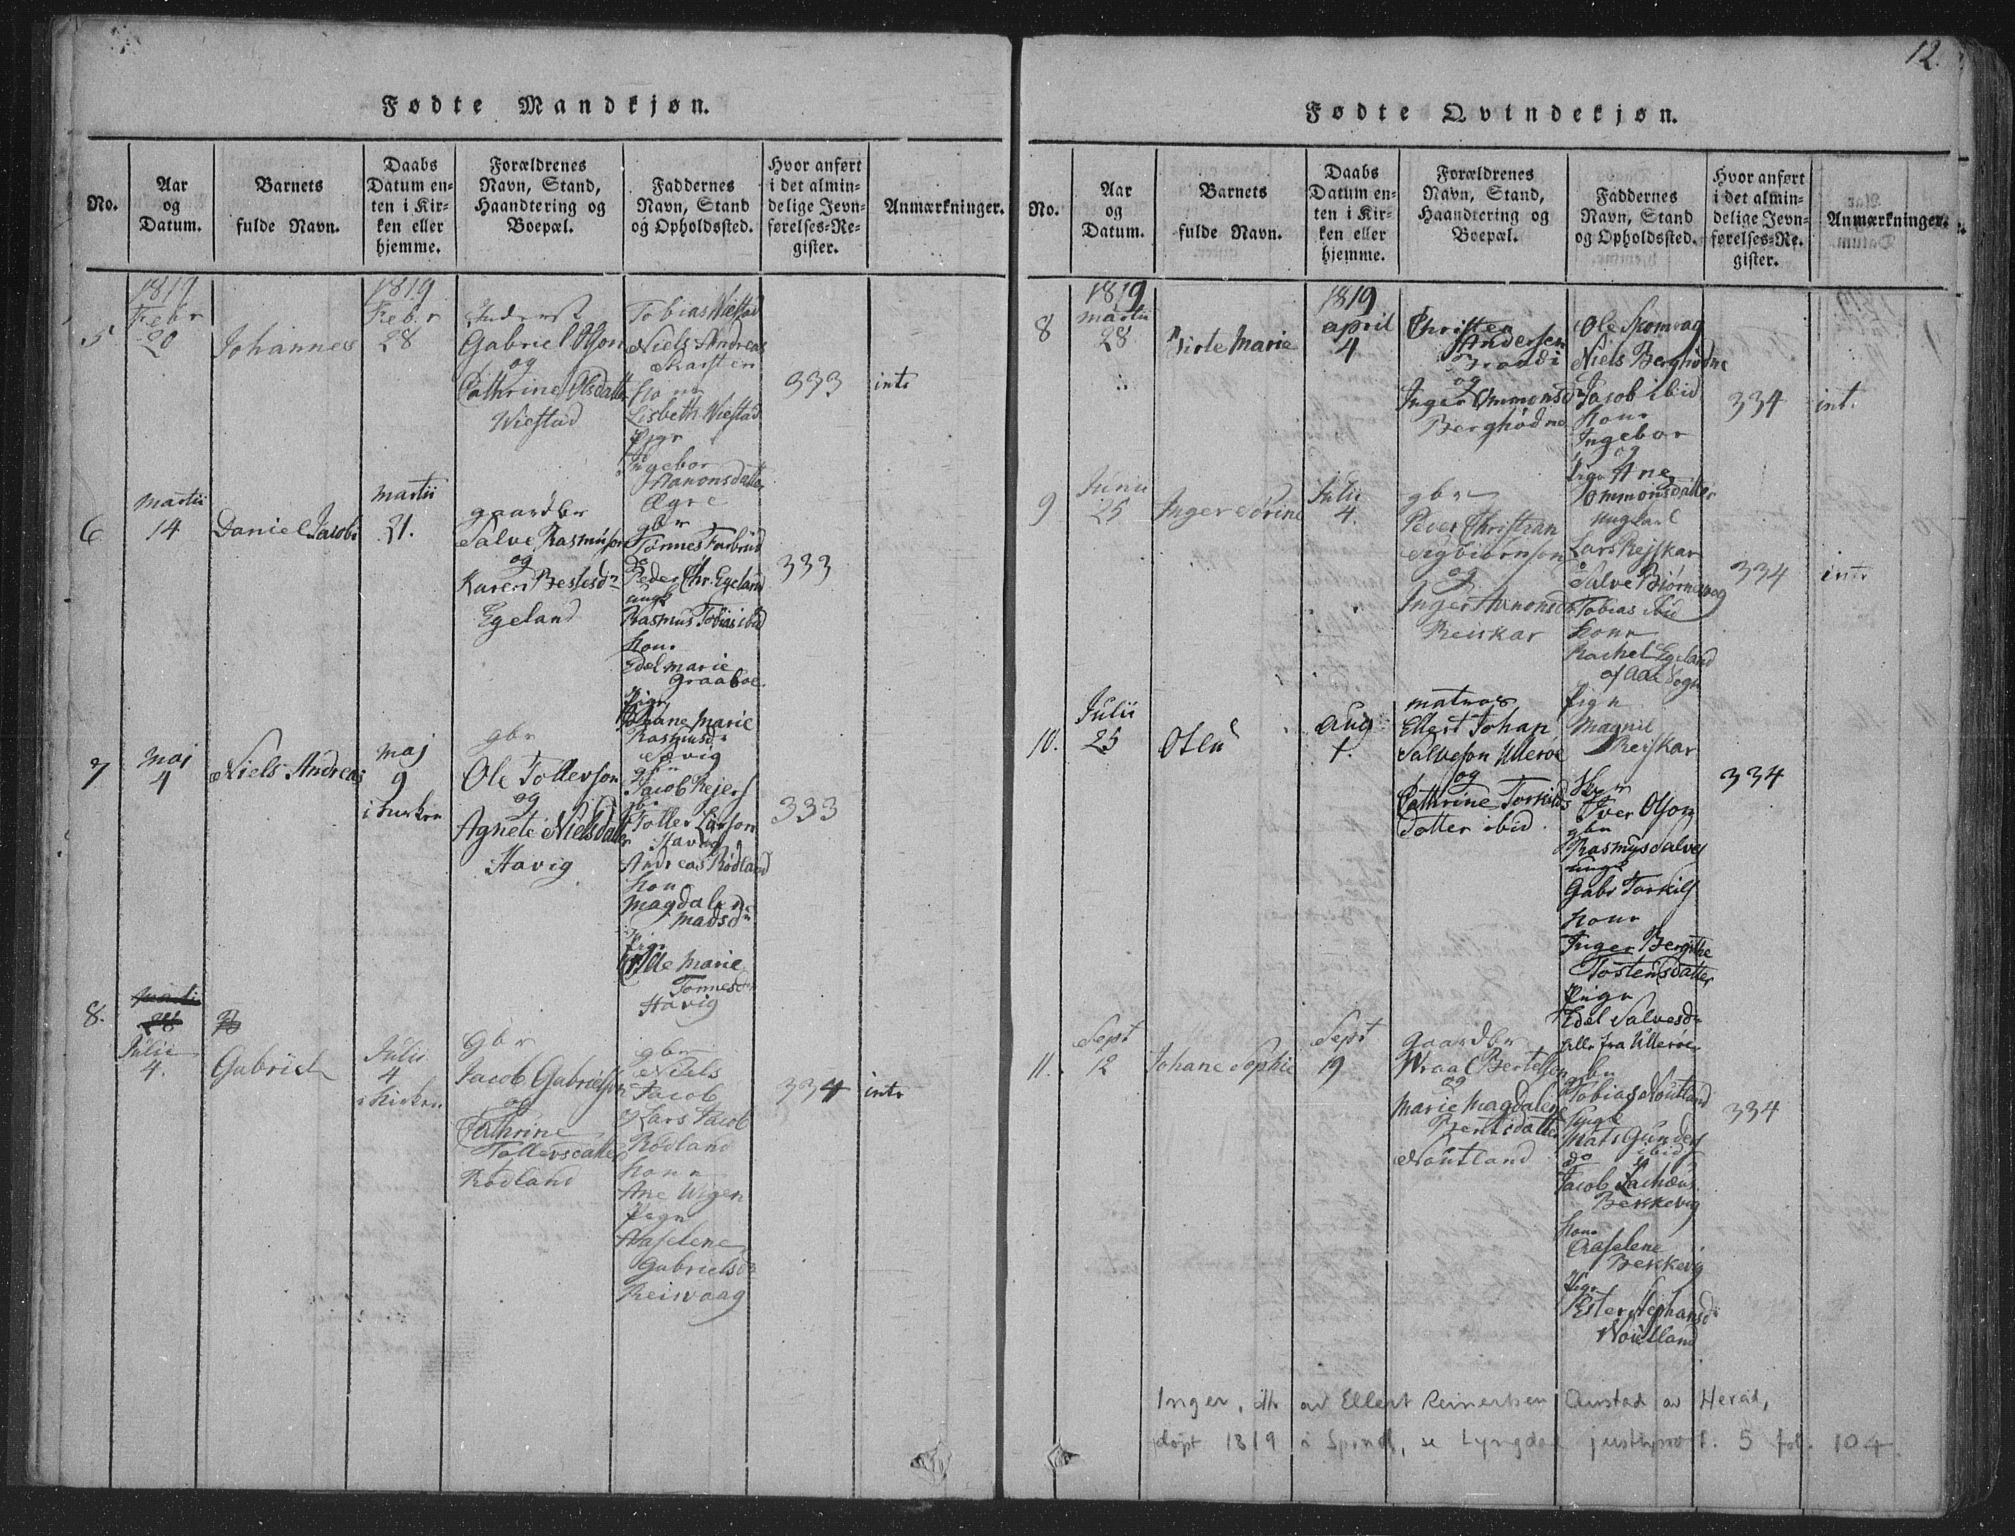 12.
Fødte Mandkjøn.
No.
Aar
og
Datum.
Barnets
fulde Navn.
Daabs
Datum en-
ten i Kir-
ken eller
hjemme.
Forældrenes
Navn, Stand,
Haandtering og
Boepæl.
Faddernes
Navn, Stand
og Opholdssted.
Hvor anført
i det almin-
delige Jevn-
førelses-Re-
gister.
Anmærkninger.
5
1819
Febr
20
Johannes
1819
Febr
28
Gabriel Olson
og
Cathrine Olsdatter
Wiestad
Tobias Wiestad
Niels Andreas
Karsten
Kone
Lisbeth Wiestad
Pige
Ingebor
Aanonsdatter
333
intr
6
Martii
14
Daniel Jacob
Martii
21.
gaardbr
Salve Rasmuson
og
Karen Bertesdr
Egeland
gbr
Tønnes
do
Peder Chr. Egeland
ungk
Rasmus Tobias ibid
Kone
Edel Marie
Graaboe
Pige
Johane Marie
Rasmusdr
333
7
Maj
4
Niels Andreas
Maj
9
i kirken
gbr
Ole Tollevson
og
Agnete Nielsdatter
Havig
gbr
Jacob Rejers
gbr
Toller Larson
Havig
Andreas Rødland
Kone
Magdalene
Madsdr
Pige
Marie
Tønnesdr
Havig
333
8.
Julii
4.
Gabriel
Julii
4
i Kirken
gbr
Jacob Gabrielson
og
Cathrine
Tollevsdatter
Rødland
gbr
Niels
Jacob
og Lars Jacob
Rødland
Kone
Ane Wigen
Pige
Aaselene
Gabrielsdr
Reisvaag
334
intr
Fødte Qvindekjøn.
No.
Aar
og
Datum.
Barnets
fulde Navn.
Daabs
Datum en-
ten i Kir-
ken eller
hjemme.
Forældrenes
Navn, Stand,
Haandtering og
Boepæl.
Faddernes
Navn, Stand
og Opholdssted.
Hvor anført
i det almin-
delige Jevn-
førelses-Re-
gister.
Anmærkninger.
8
1819
Martii
28
Birte Marie
1819
April
4
Christen
Andersen
og
Inger Ommonsd
Berghødne
Ole Skomrag
Niels Berghødne
Jacob ibid
Kone
Ingebor
og
Pige Ane
Ommonsdatter
334
int.
9
Junii
25
Inger Sørine
Julii
4.
gbr
Peder Christian
Sigbiørnson
og
Inger Aanonsd
Reiskar
Ungkarl
Lars Rejskar
Salve Biørnevog
Tobias ibid
Kone
Rachel Egeland
af Aae Sogn
Pige
Magnil
Reiskar
334
intr
10.
Julii
25
Oslu
Aug
1.
Matros
Ellert Johan
Salveson Ullerøe
og
Cathrine Torkilds
Datter ibid.
Iver Olson
gbr
Rasmus Salves
ungk
Gabr Torkils
Kone
Inger Bergithe
Tostensdatter
Pige
Edel Salvesdr
alle fra Ullerøe
334
11.
Sept
12
Johane Sophie
Sept
19
gaardbr
Wraal Bertelson
og
Marie Magdalene
Berntsdatter
Noutland
gbr
Tobias Noutland
ungk
Mats Gunders
ibid
do
Jacob Zachæus
Bekkevig
Kone
Aaselene
Bekkevig
Pige
Ester Stephansdr
Noutland
334
Inger, dtr av Ellert Reinertsen Austad av Herad,
døpt 1819 i Spind, se Lyngdal justisprot. 5 fol. 104.